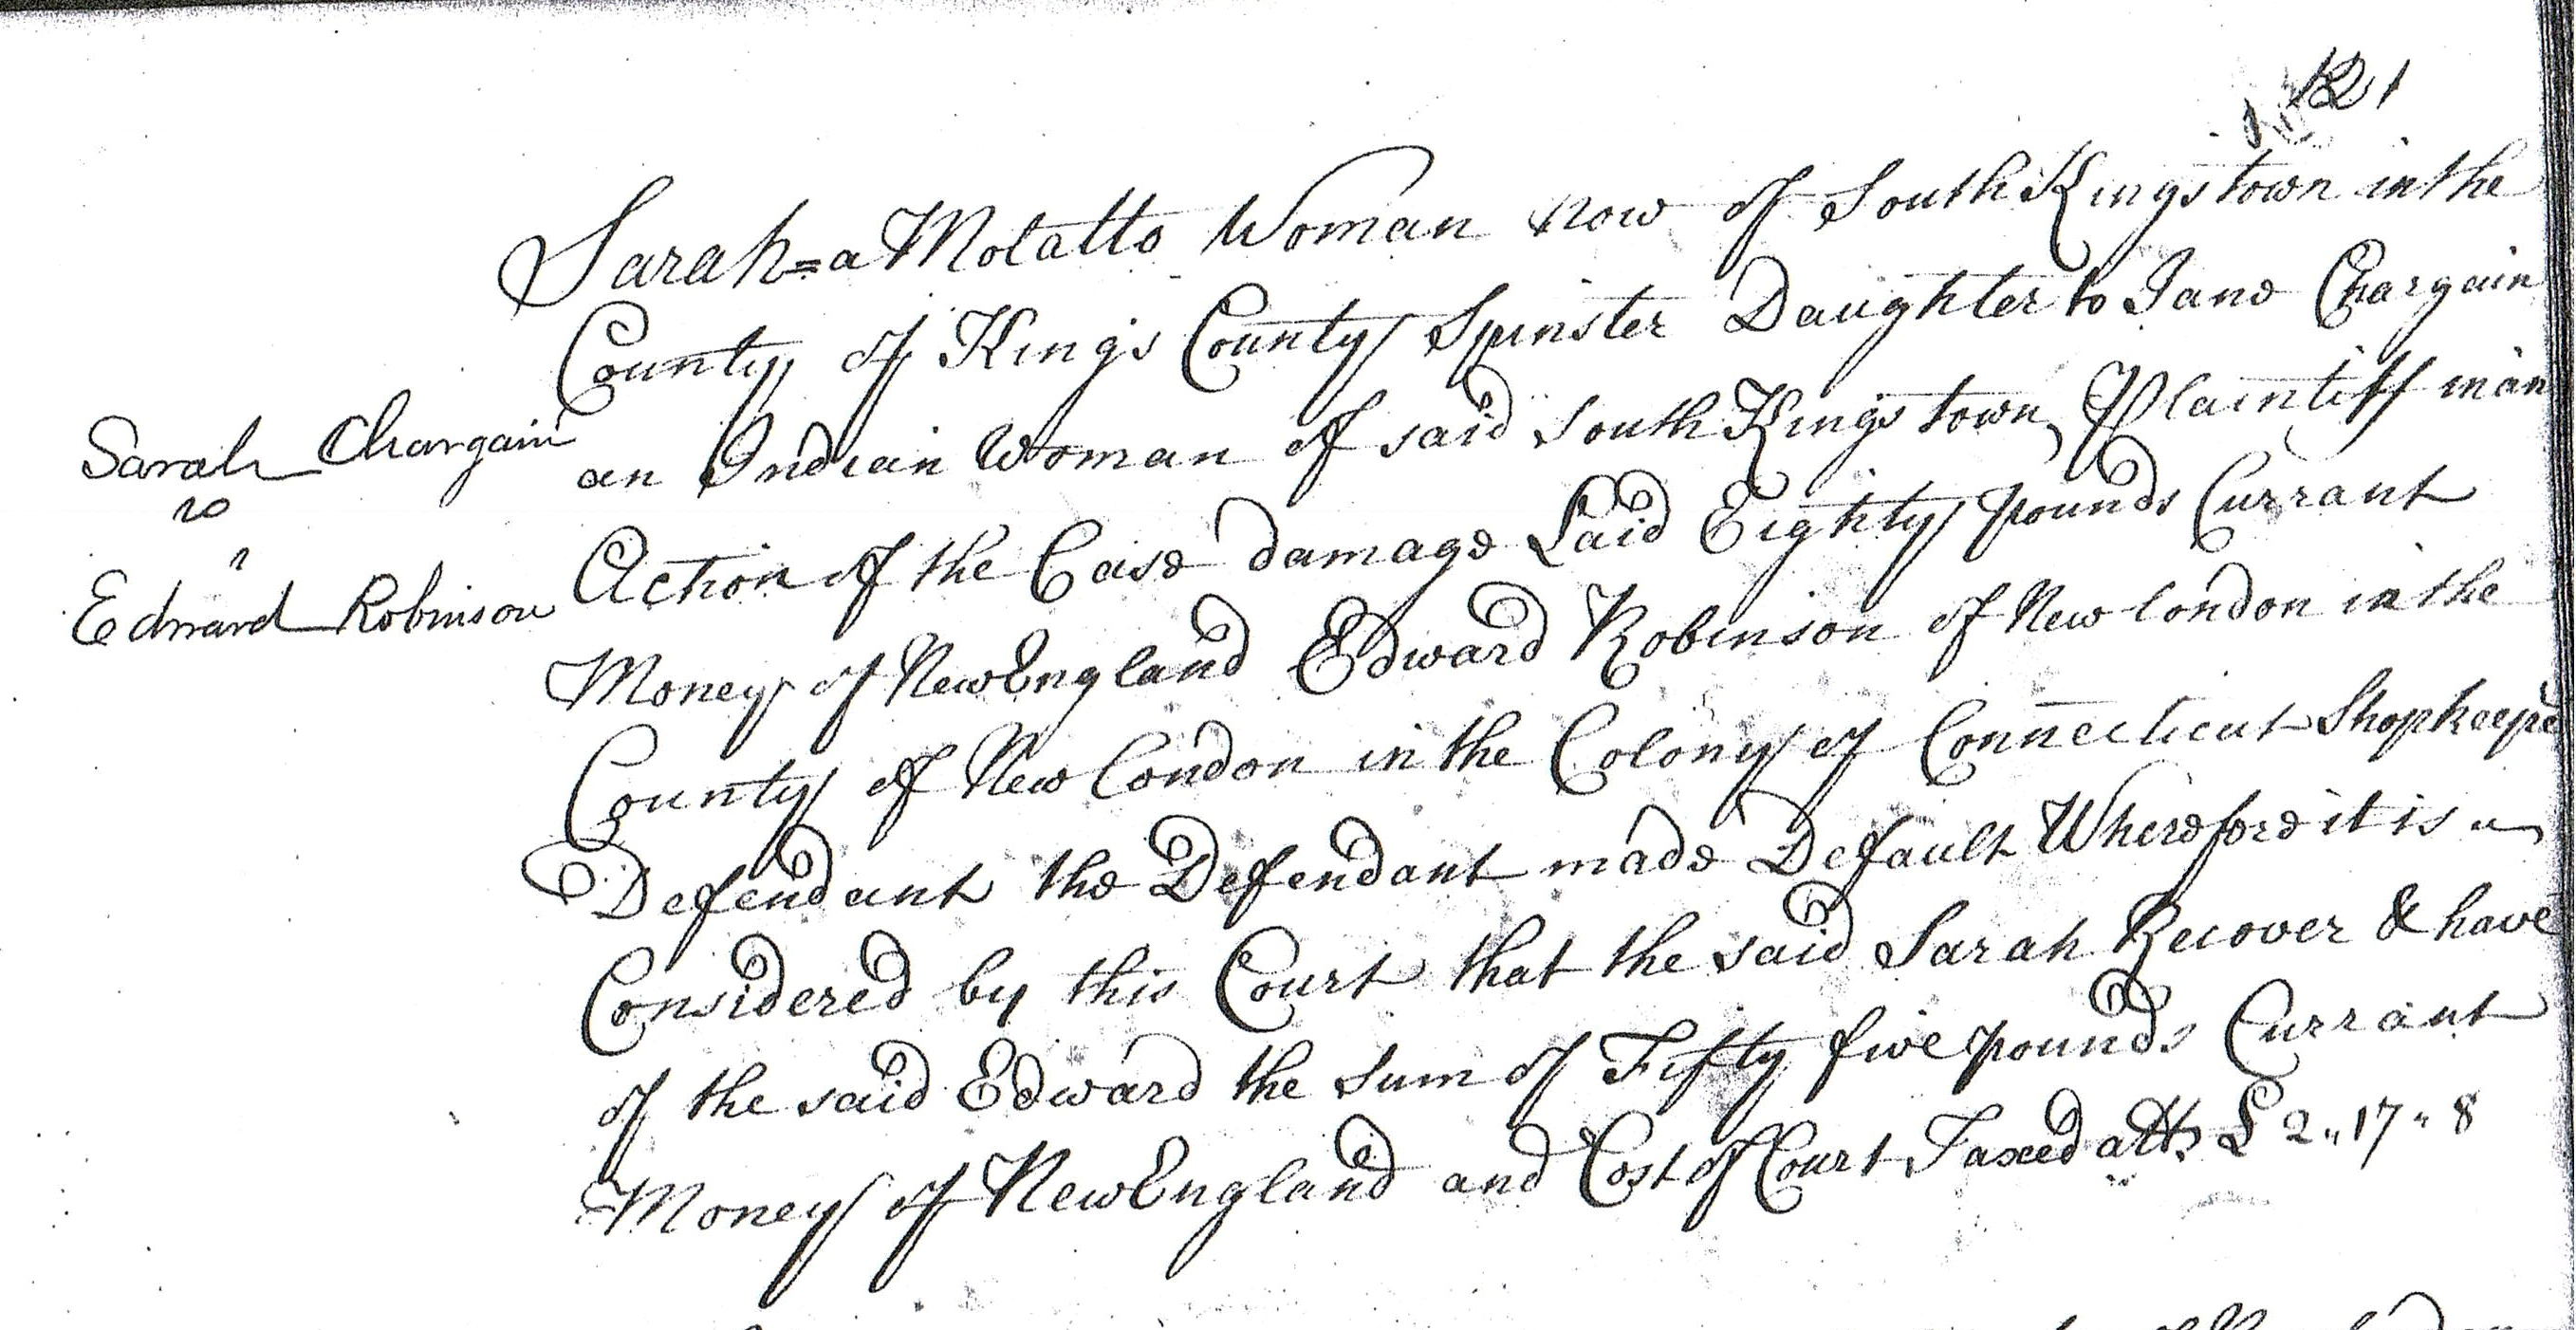 121
Sarah=a Molatto Woman now of South Kingstown in the
County of Kings County Spinster Daughter to Jane Chargain
an Indian Woman of said South Kingstown, Plaintiff in an
Sarah Chargain
vs
Edward Robinson
Action of the Case damage Laid Eighty pounds Currant
Money of NewEngland Edward Robinson of New London in the
County of New London in the Colony of Connecticut Shopkeeper
Defendant the Defendant made Default Wherefore it is
Considered by this Court that the said Sarah Recover & have
of the said Edward the sum of Fifty five pounds Currant
Money of NewEngland and Cost of Court Taxed att £ 2 " 17 " 8